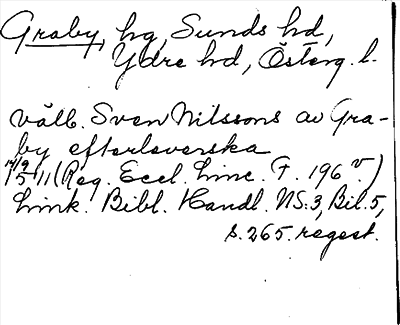 Graby, hg, Sunds hd,
Ydre hd, Österg. l.
välb. Sven Nilssons av Gra-
by efterleverska
14/9 1511 (Reg. Eccl. Linc. F. 196 v.)
Link. Bibl. Handl. NS:3, Bil. 5,
s. 265. regest.